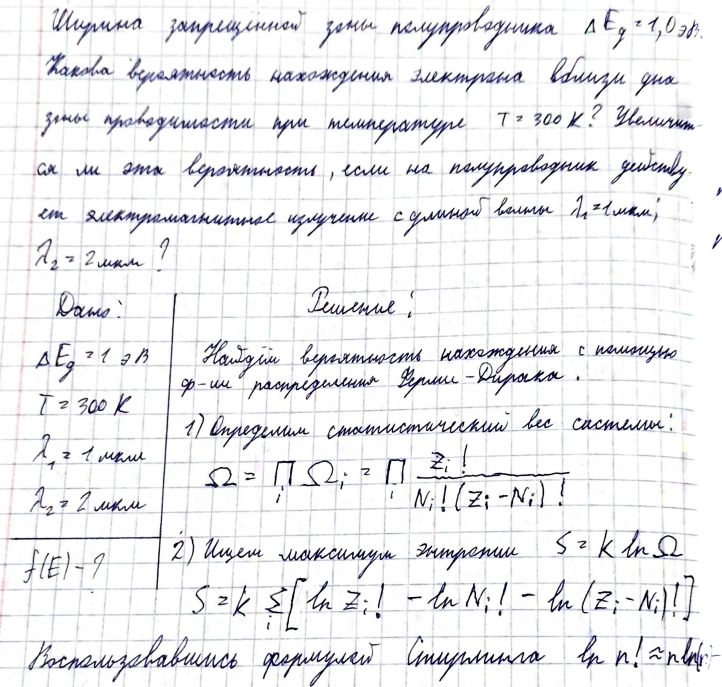 Ширина запрещённой зоны полупроводника ΔEg = 1,0 эВ.
Какова вероятность нахождения электрона вблизи дна
зоны проводимости при температуре T = 300 К? Увеличит-
ся ли эта вероятность, если на полупроводник действу-
ет электромагнитное излучение с длиной волны λ₁ = 1 мкм;
λ₂ = 2 мкм ?
Дано:
ΔEg = 1 эВ
T = 300 К
λ₁ = 1 мкм
λ₂ = 2 мкм
f(E) - ?
Решение:
Найдём вероятность нахождения с помощью
ф-ии распределения Ферми-Дирака.
1) Определим статистический вес системы:
Ω = ∏ᵢ Ωᵢ = ∏ᵢ Zᵢ! / Nᵢ! (Zᵢ - Nᵢ)!
2) Ищем максимум энтропии S = k ln Ω
S = k Σᵢ [ ln Zᵢ! - ln Nᵢ! - ln (Zᵢ - Nᵢ)! ]
Воспользовавшись формулой Стирлинга ln n! ≈ n ln(n) -